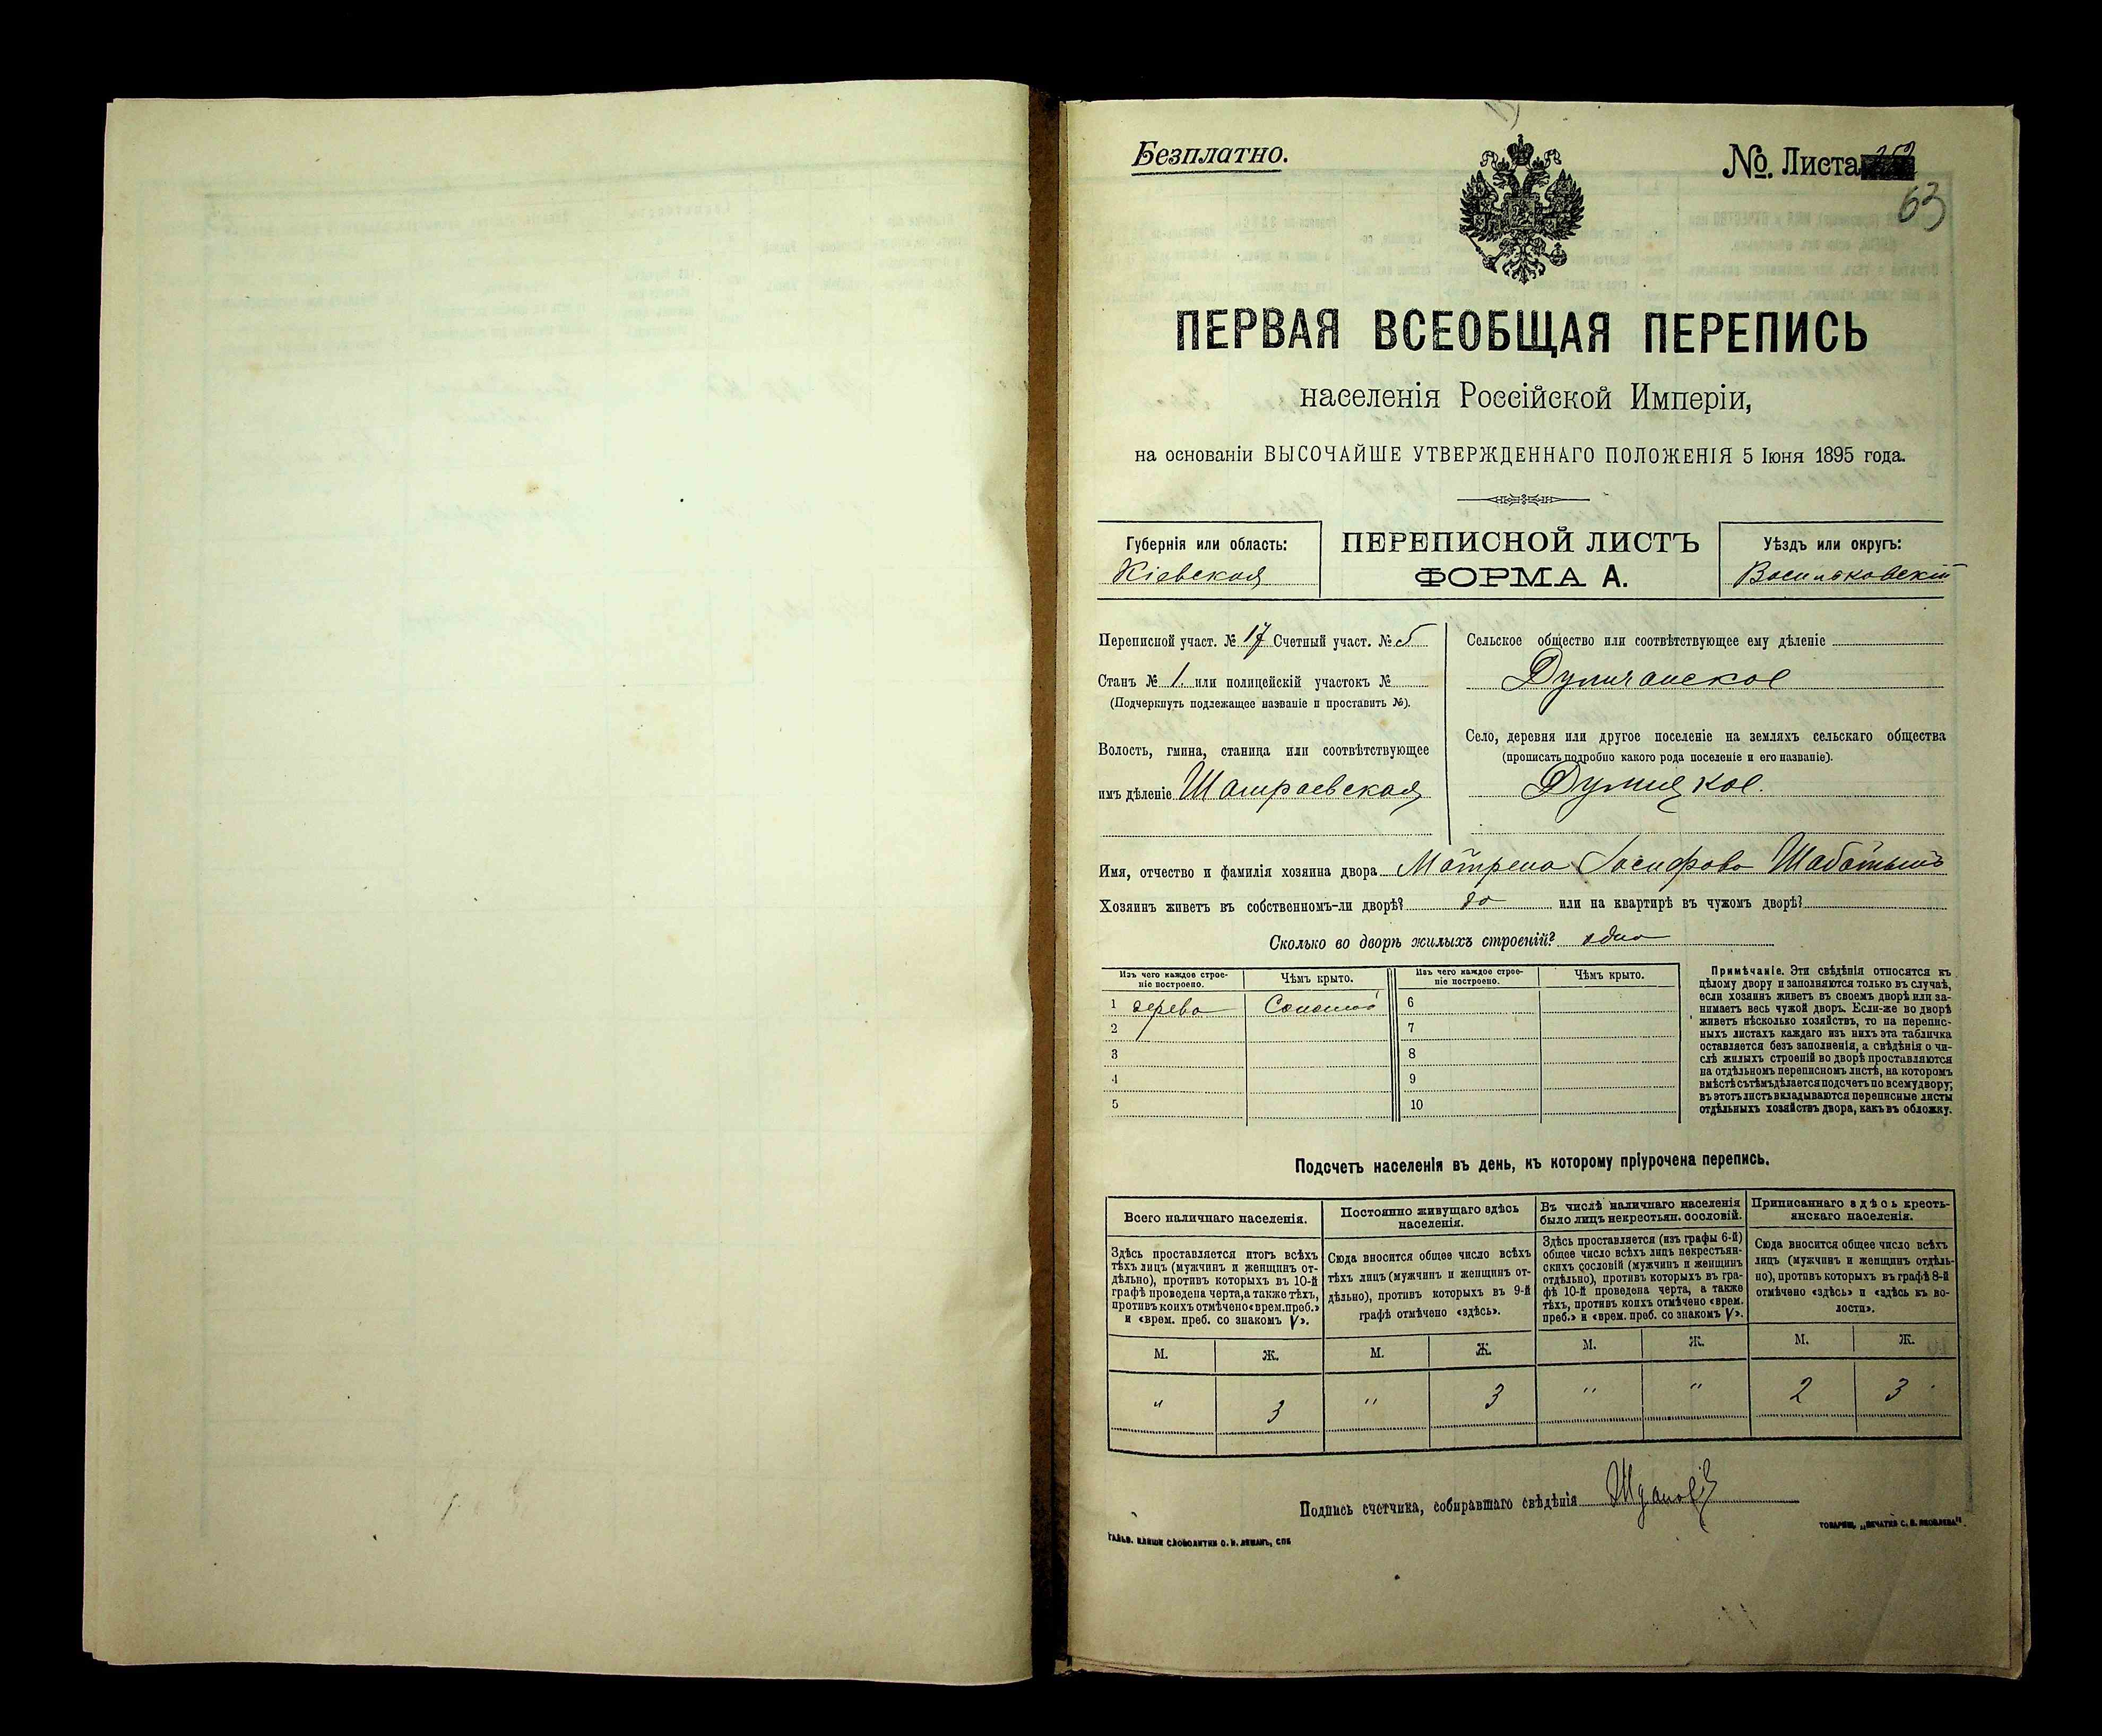 Безплатно.
№. Листа
63
ПЕРВАЯ ВСЕОБЩАЯ ПЕРЕПИСЬ
населенія Россійской Имперіи,
на основаніи ВЫСОЧАЙШЕ УТВЕРЖДЕННАГО ПОЛОЖЕНІЯ 5 Іюня 1895 года.
Губернія или область:
Кіевская
ПЕРЕПИСНОЙ ЛИСТЪ
ФОРМА А.
Уѣздъ или округъ:
Васильковскій
Переписной участ. № 17 Счетный участ. № 5
Станъ № 1. или полицейскій участокъ №
(Подчеркнуть подлежащее названіе и проставить №).
Волость, гмина, станица или соотвѣтствующее
имъ дѣленіе Шамраевская
Сельское общество или соотвѣтствующее ему дѣленіе
Село, деревня или другое поселеніе на земляхъ сельскаго общества
(прописать подробно какого рода поселеніе и его названіе).
Имя, отчество и фамилія хозяина двора Матрена Іосифова
Хозяинъ живетъ въ собственномъ-ли дворѣ? да или на квартирѣ въ чужомъ дворѣ?
Сколько во дворѣ жилыхъ строеній? одно
Изъ чего каждое строе-
ніе построено.
Чѣмъ крыто.
Изъ чего каждое строе-
ніе построено.
Чѣмъ крыто.
1 дерева
2
3
4
5
6
7
8
9
10
Примѣчаніе. Эти свѣдѣнія относятся къ
цѣлому двору и заполняются только въ случаѣ,
если хозяинъ живетъ въ своемъ дворѣ или за-
нимаетъ весь чужой дворъ. Если-же во дворѣ
живетъ нѣсколько хозяйствъ, то на перепис-
ныхъ листахъ каждаго изъ нихъ эта табличка
оставляется безъ заполненія, а свѣдѣнія о чи-
слѣ жилыхъ строеній во дворѣ проставляются
на отдѣльномъ переписномъ листѣ, на которомъ
вмѣстѣ съ тѣмъ дѣлается подсчетъ по всему двору;
въ этотъ листъ вкладываются переписные листы
отдѣльныхъ хозяйствъ двора, какъ въ обложку.
Подсчетъ населенія въ день, къ которому пріурочена перепись.
Всего наличнаго населенія.
Здѣсь проставляется итогъ всѣхъ
тѣхъ лицъ (мужчинъ и женщинъ от-
дѣльно), противъ которыхъ въ 10-й
графѣ проведена черта, а также тѣхъ,
противъ коихъ отмѣчено «врем. преб.»
и «врем. преб. со знакомъ V».
Постоянно живущаго здѣсь
населенія.
Сюда вносится общее число всѣхъ
тѣхъ лицъ (мужчинъ и женщинъ от-
дѣльно), противъ которыхъ въ 9-й
графѣ отмѣчено «здѣсь».
Въ числѣ наличнаго населенія
было лицъ некрестьян. сословій.
Здѣсь проставляется (изъ графы 6-й)
общее число всѣхъ лицъ некрестьян-
скихъ сословій (мужчинъ и женщинъ
отдѣльно), противъ которыхъ въ гра-
фѣ 10-й проведена черта, а также
тѣхъ, противъ коихъ отмѣчено «врем.
преб.» и «врем. преб. со знакомъ V».
Приписаннаго здѣсь кресть-
янскаго населенія.
Сюда вносится общее число всѣхъ
лицъ (мужчинъ и женщинъ отдѣль-
но), противъ которыхъ въ графѣ 8-й
отмѣчено «здѣсь» и «здѣсь къ во-
лости».
М. Ж. М. Ж. М. Ж. М. Ж.
" 3 " 3 " " 2 3
Подпись счетчика, собиравшаго свѣдѣнія
ГАЛЬВ. КЛИШЕ СЛОВОЛИТНИ О. И. ЛЕМАНЪ, СПБ
ТОВАРИЩ. „ПЕЧАТНЯ С. П. ЯКОВЛЕВА"